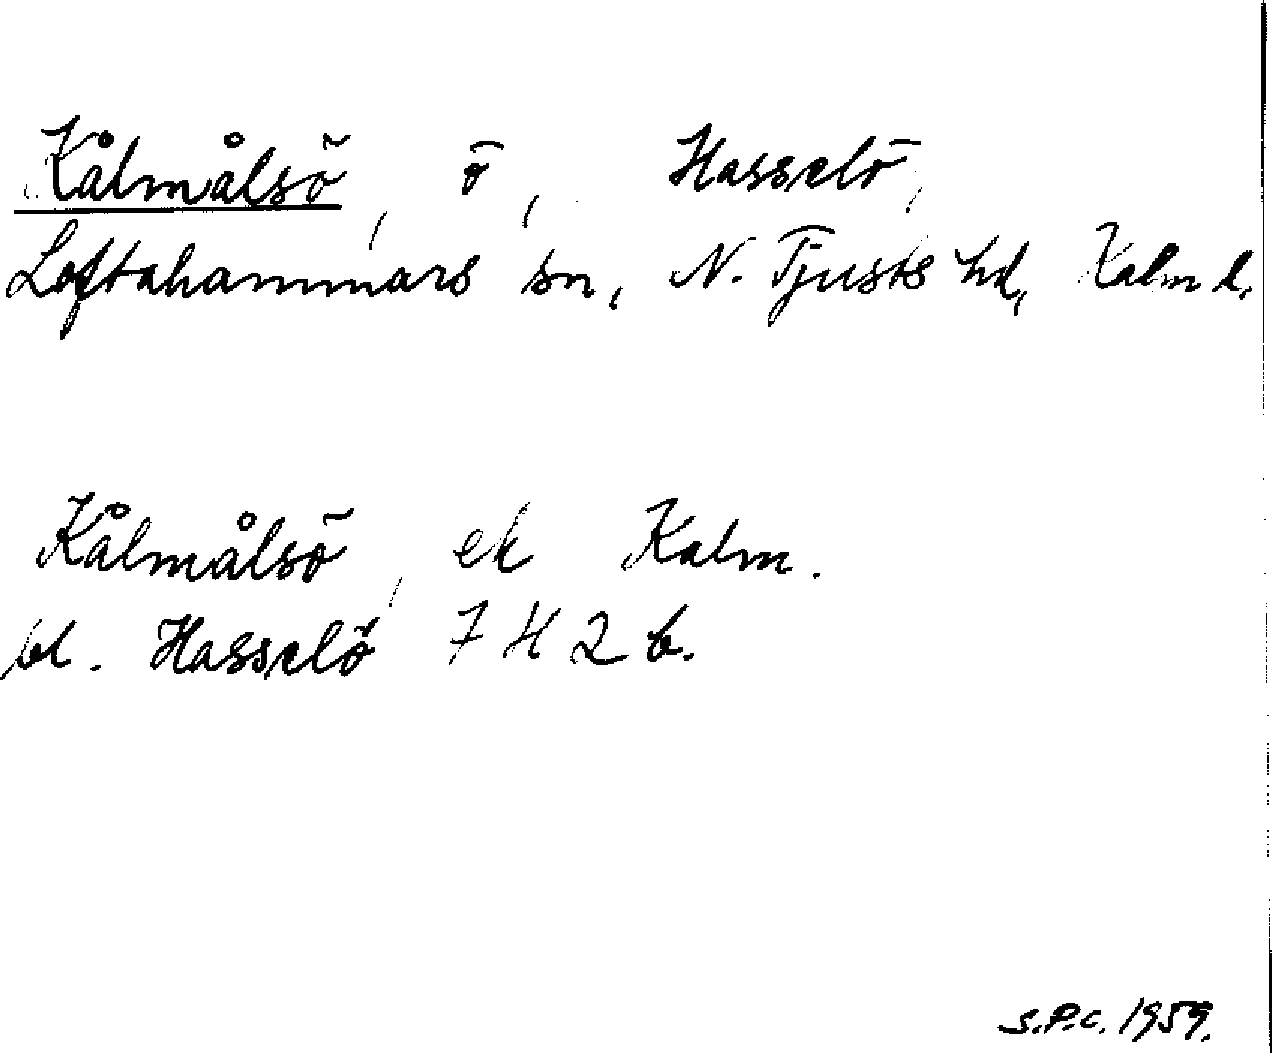 Kålmålsö, ö, Hasselö,
Loftahammars sn, N. Tjusts hd, Kalm l.
Kålmålsö, ek Kalm.
bl. Hasselö 7 H 2 b.
S.P.C. 1959.